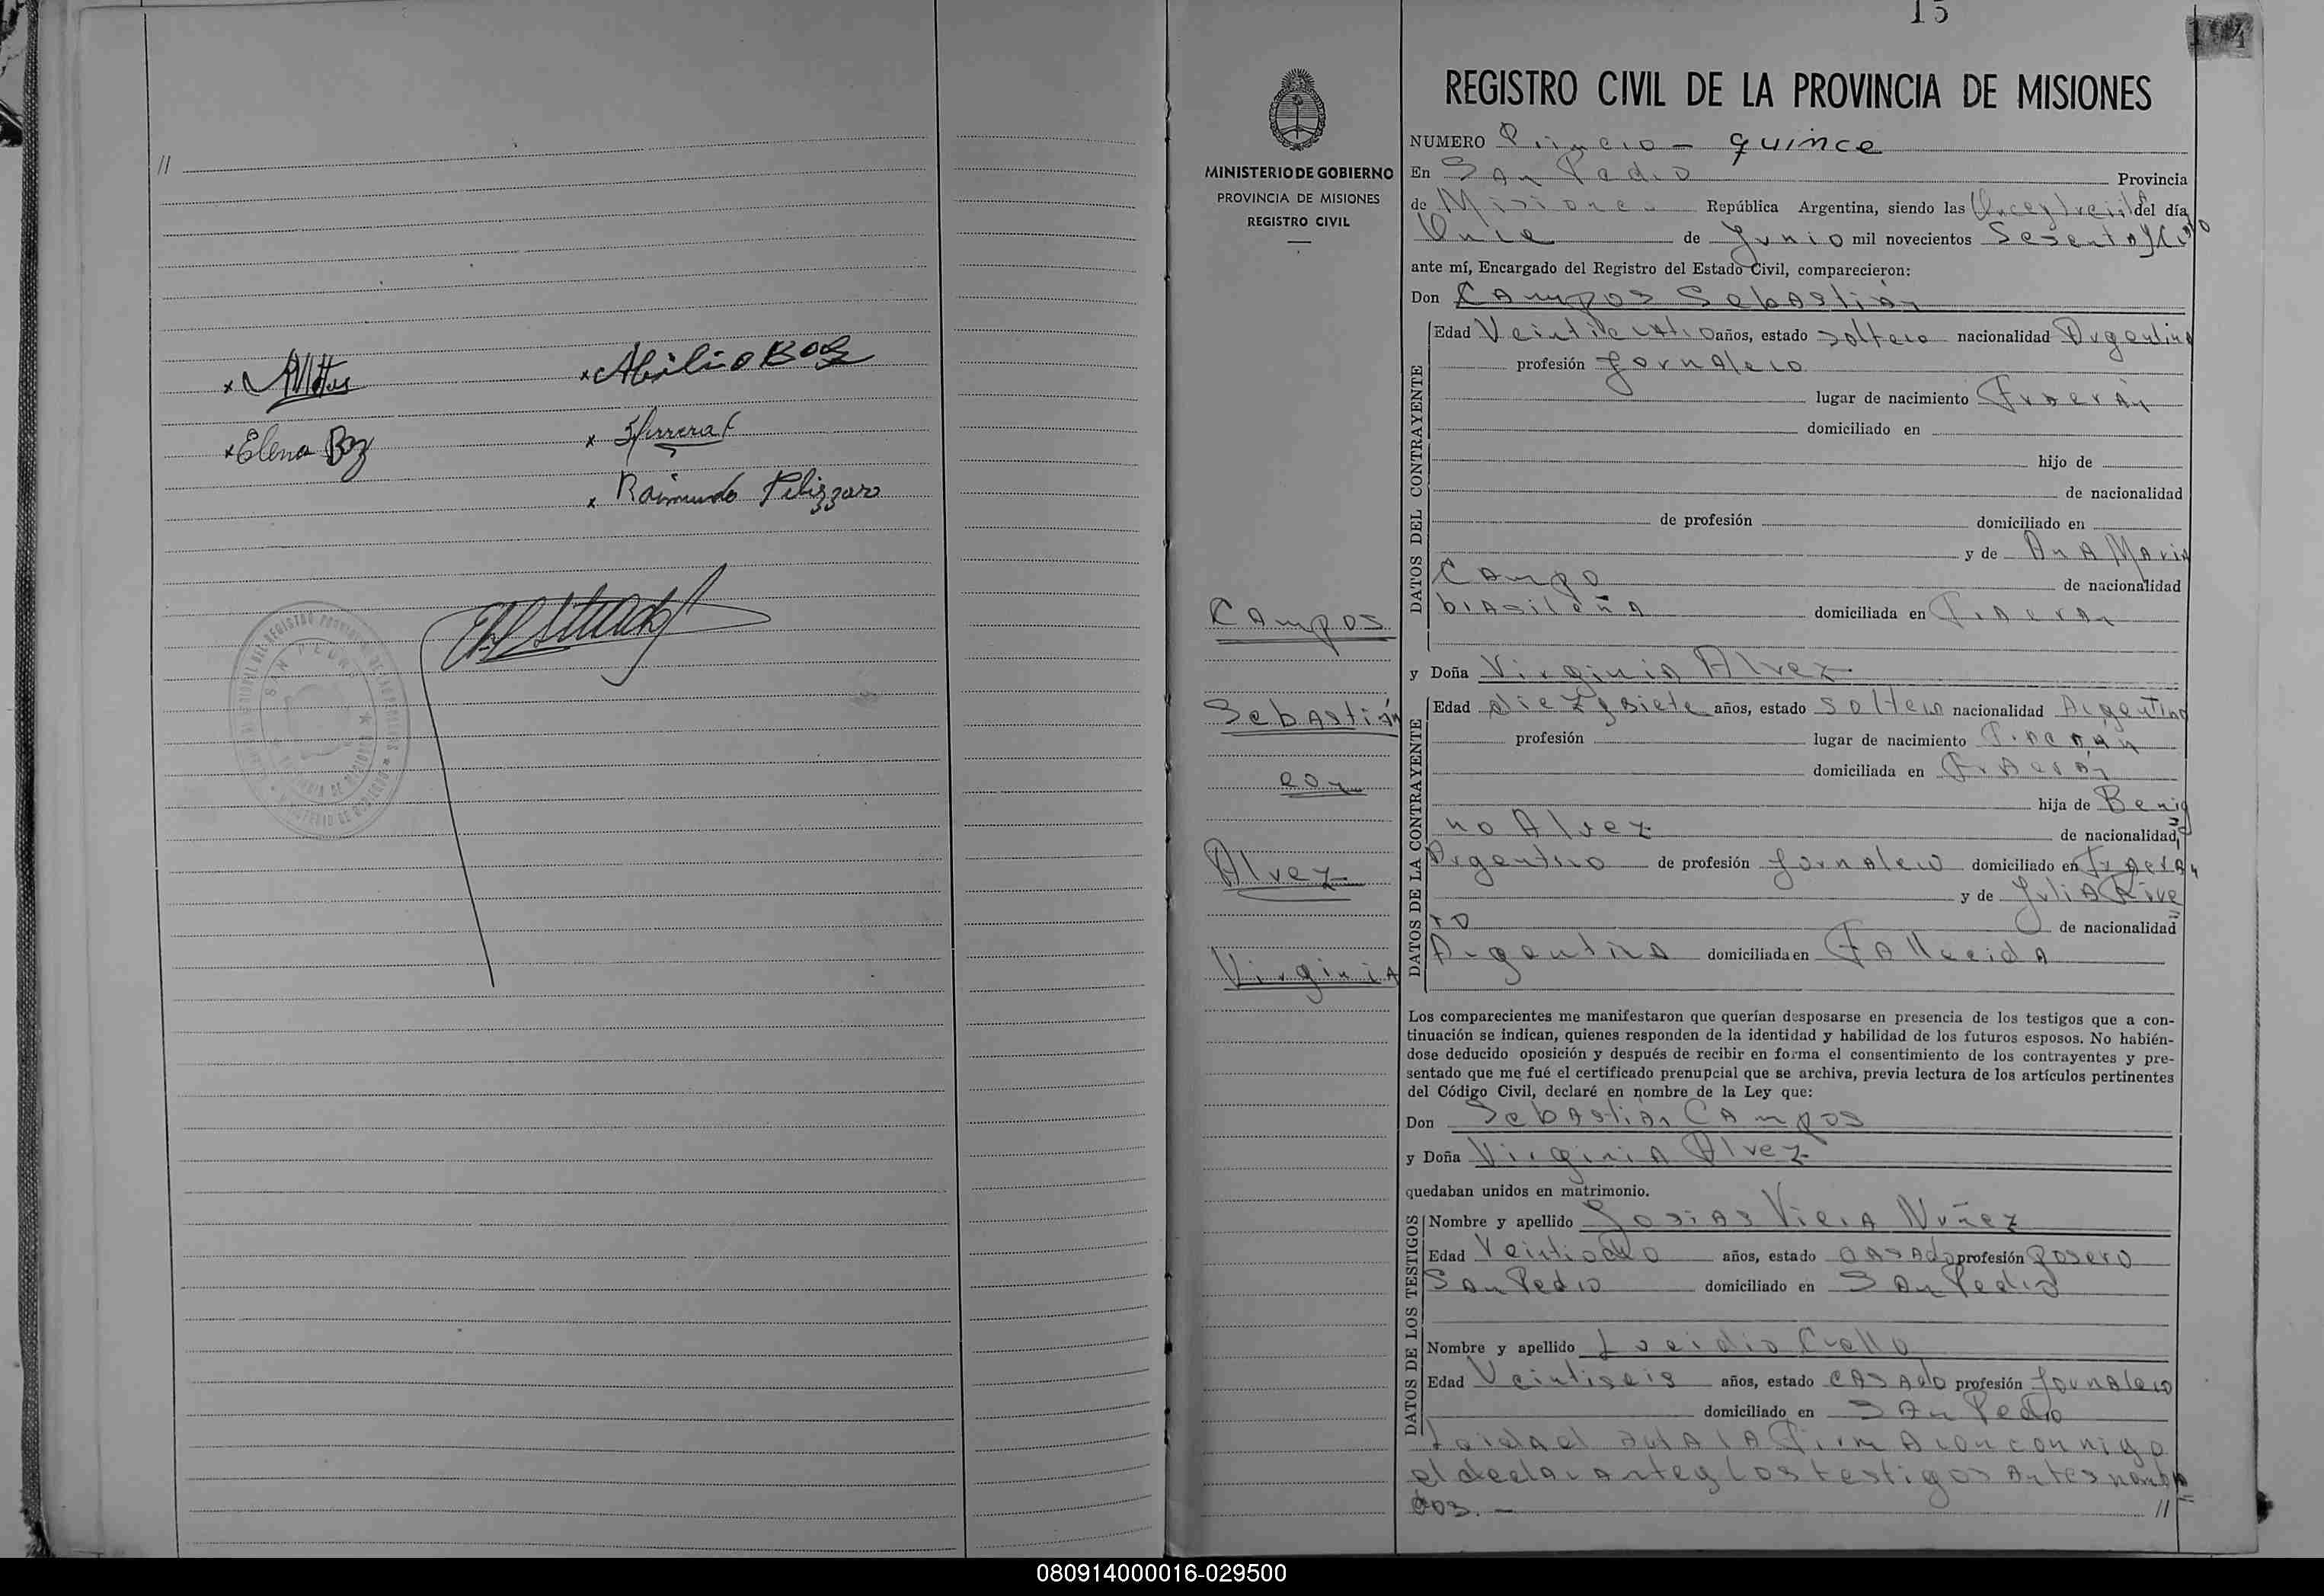 //
Elena Boz
Abilio Boz
Herrera
Raimundo Pelizzaro
SAN PEDRO
15
MINISTERIO DE GOBIERNO
PROVINCIA DE MISIONES
REGISTRO CIVIL
Campos
Sebastián
con
Alvez
Virginia
REGISTRO CIVIL DE LA PROVINCIA DE MISIONES
NUMERO Primero - quince
En San Pedro Provincia
de Misiones República Argentina, siendo las del día
Once de Junio mil novecientos Sesenta y
ante mí, Encargado del Registro del Estado Civil, comparecieron:
Don Campos Sebastián
DATOS DEL CONTRAYENTE
Edad años, estado soltero nacionalidad Argentino
profesión Jornalero
lugar de nacimiento Fracrán
domiciliado en
hijo de
de nacionalidad
de profesión domiciliado en
y de Ana Maria
Campo de nacionalidad
brasileña domiciliada en Fracrán
y Doña Virginia Alvez
DATOS DE LA CONTRAYENTE
Edad diez y siete años, estado soltera nacionalidad Argentina
profesión lugar de nacimiento Fracrán
domiciliada en Fracrán
hija de Benig
no Alvez de nacionalidad
Argentino de profesión Jornalero domiciliado en Fracrán
y de Julia Rive
ro de nacionalidad
Argentina domiciliada en Fallecida
Los comparecientes me manifestaron que querían desposarse en presencia de los testigos que a con-
tinuación se indican, quienes responden de la identidad y habilidad de los futuros esposos. No habién-
dose deducido oposición y después de recibir en forma el consentimiento de los contrayentes y pre-
sentado que me fué el certificado prenupcial que se archiva, previa lectura de los artículos pertinentes
del Código Civil, declaré en nombre de la Ley que:
Don Sebastián Campos
y Doña Virginia Alvez
quedaban unidos en matrimonio.
DATOS DE LOS TESTIGOS
Nombre y apellido Josias Viera Nuñez
Edad Veintiocho años, estado casado profesión
San Pedro domiciliado en San Pedro
Nombre y apellido Lucidio Cuello
Edad Veintiseis años, estado casado profesión Jornalero
domiciliado en San Pedro
Leida el acta la Firmaron conmigo
el declarante y los testigos antes nombra
dos. - //
080914000016-029500